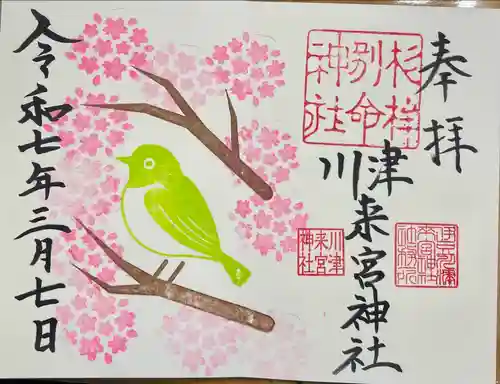 奉拝
杉桙
別命
神社
川津
来宮神社
川津
来宮
神社
令和七年三月七日